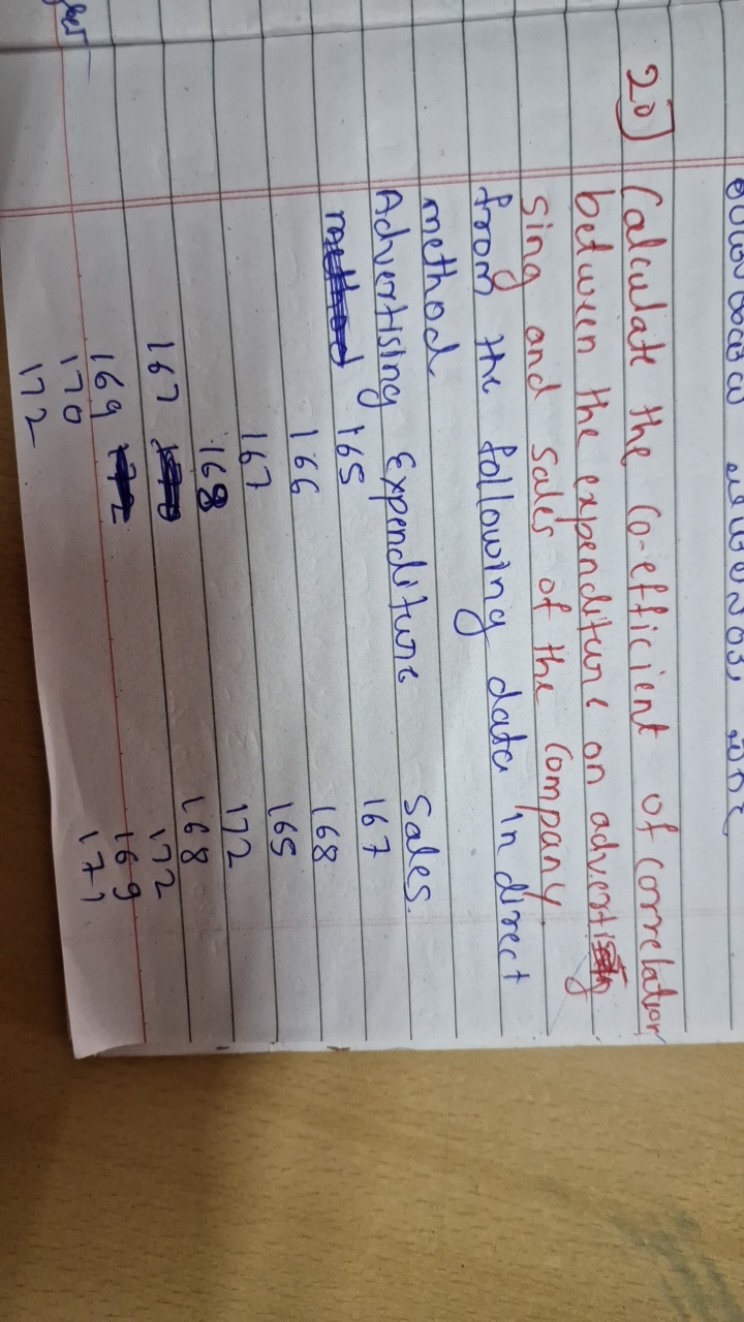 20] Calculate the Co-efficient of correlation
between the expenditure on adverti
sing and sales of the Company.
from the following data in direct
method
Advertising Expenditure Sales.
165 167
166 168
167 165
168 172
167 168
169 172
170 169
172 171